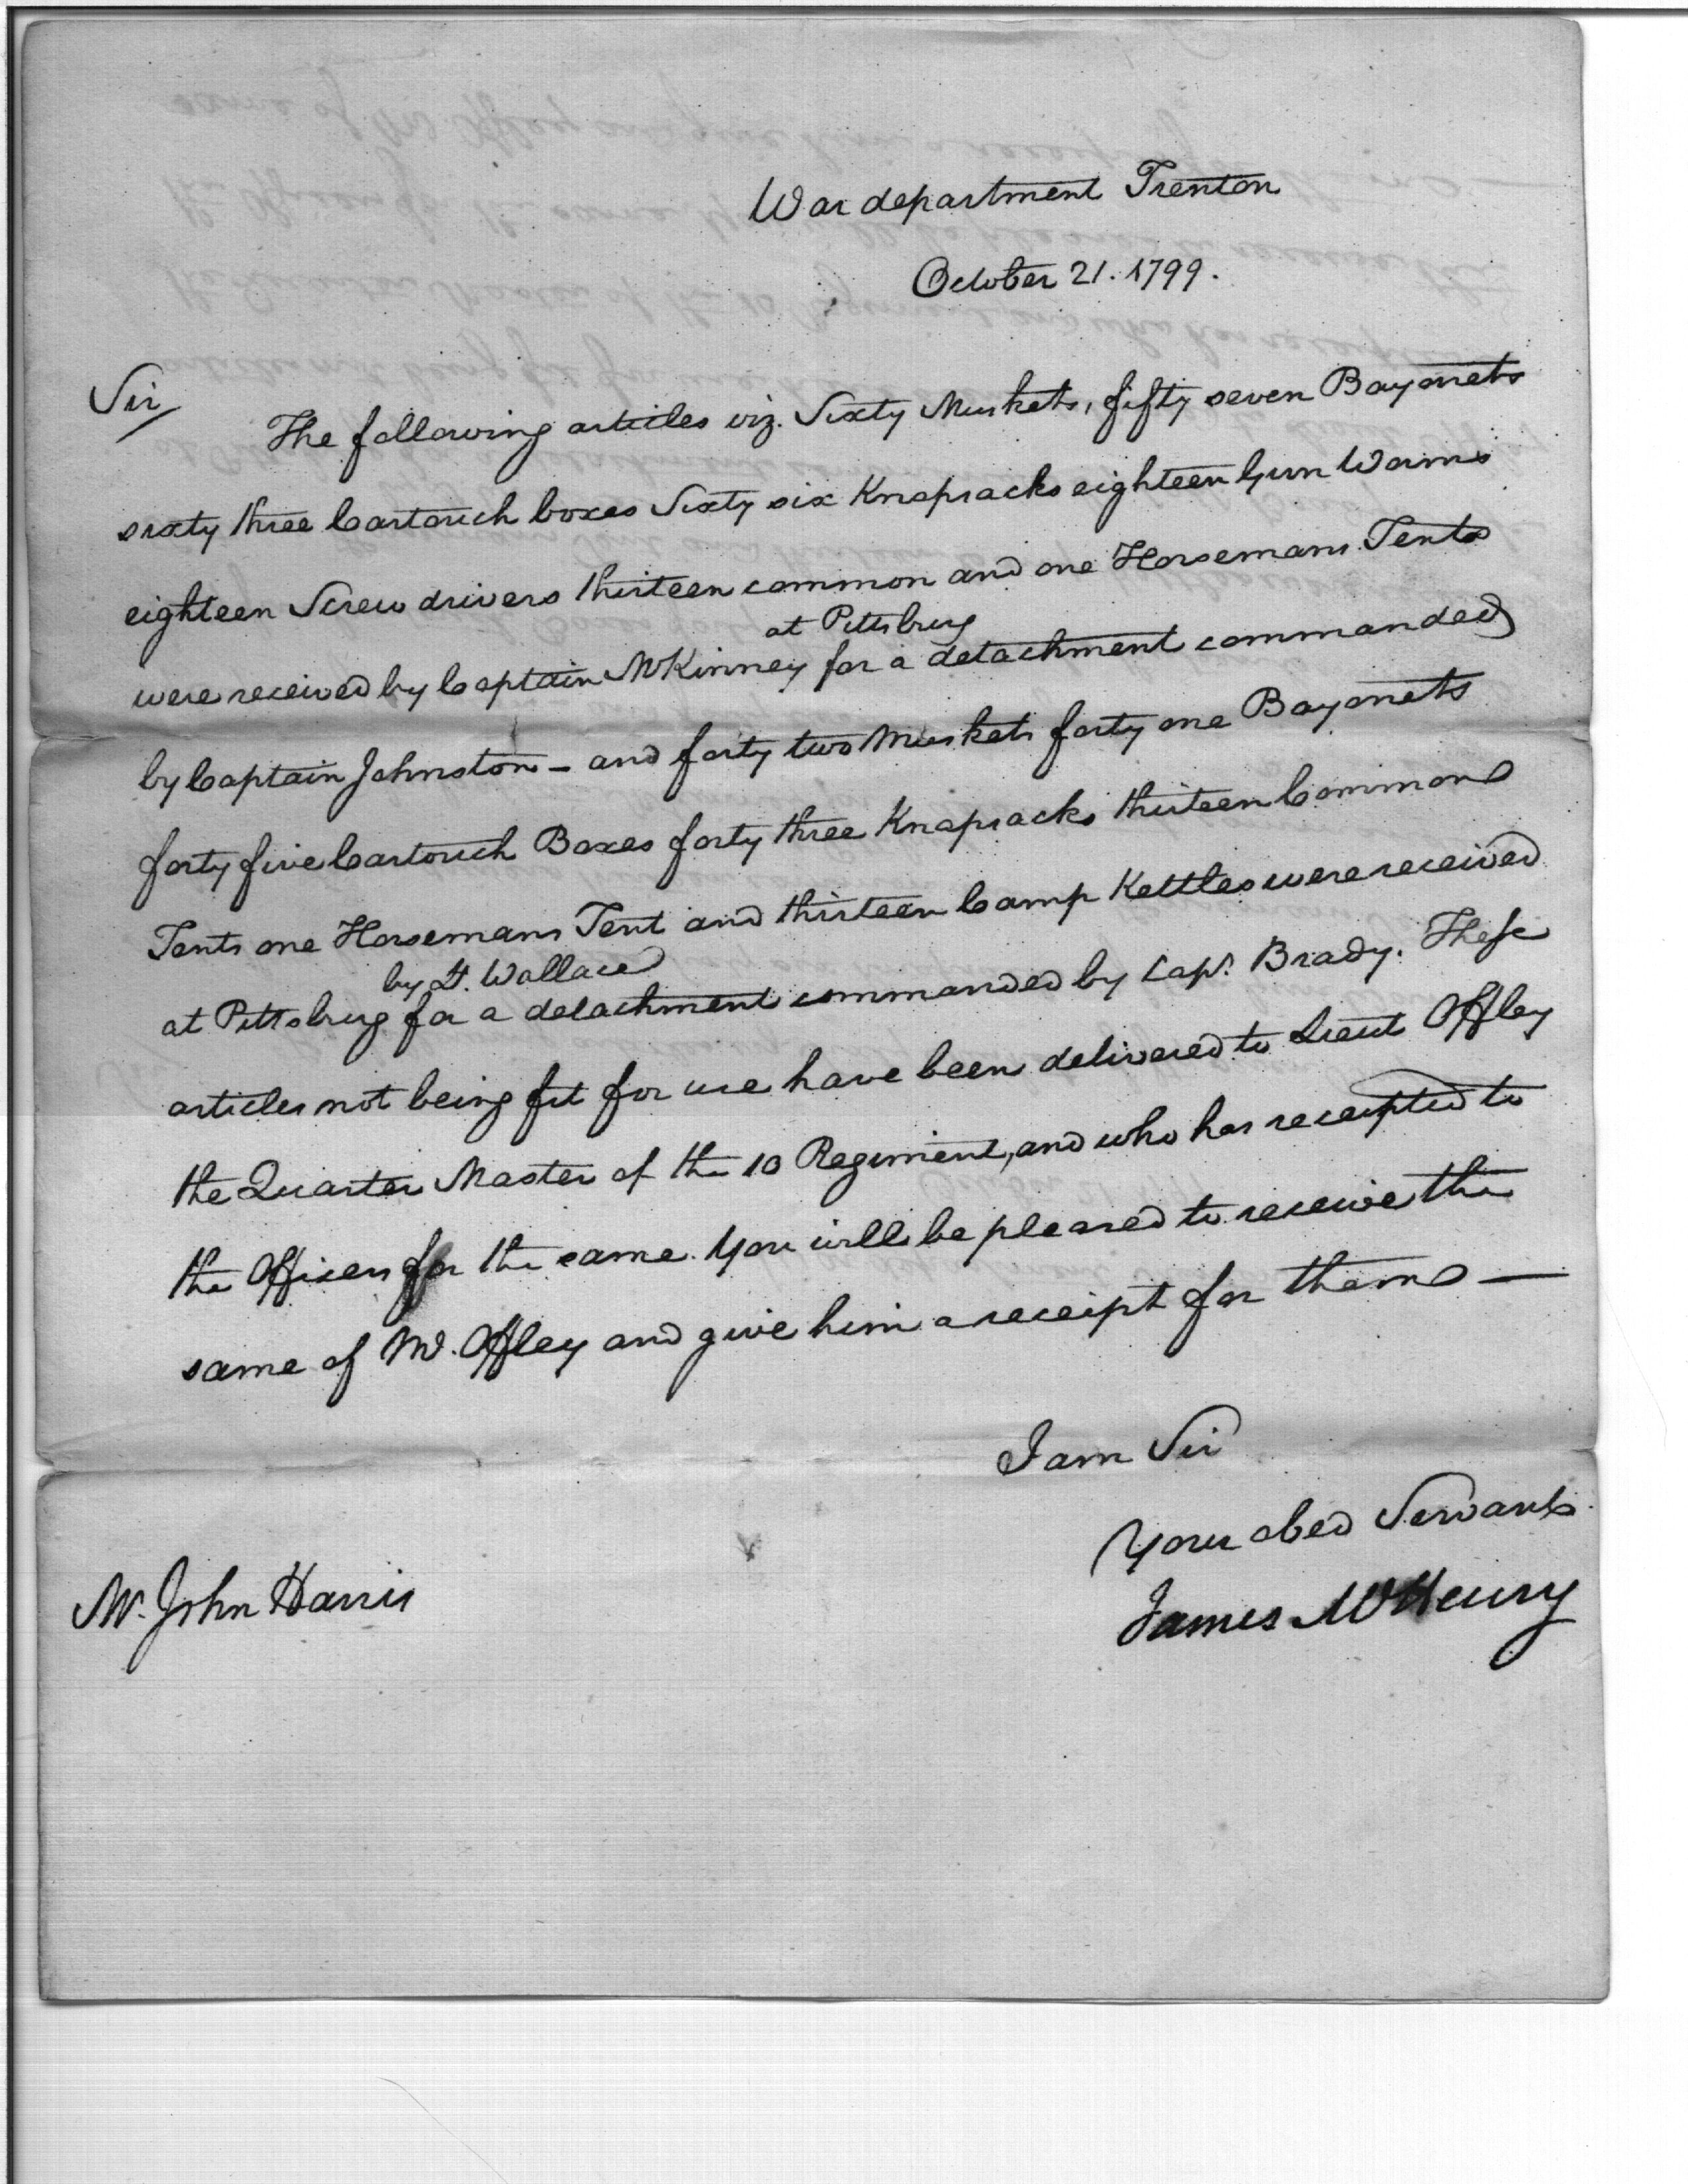 War department Trenton
October 21. 1799.
Sir
The following articles viz. Sixty Muskets, fifty seven Bayonets
sixty three Cartouch boxes Sixty six Knapsacks eighteen Gun Worms
eighteen Screw drivers thirteen common and one Horsemans Tents
at Pittsburg
were received by Captain McKinney for a detachment commanded
by Captain Johnston – and forty two Muskets forty one Bayonets
forty five Cartouch Boxes forty three Knapsacks thirteen Common
Tents one Horsemans Tent and thirteen Camp Kettles were received
by Lt. Wallace
at Pittsburg for a detachment commanded by Capt. Brady. These
articles not being fit for use have been delivered to Lieut Offley
the Quarter Master of the 10 Regiment, and who has receipted to
the Officers for the same. You will be pleased to receive the
same of Mr. Offley and give him a receipt for them —
I am Sir
Your obed Servant
James McHenry
Mr. John Harris